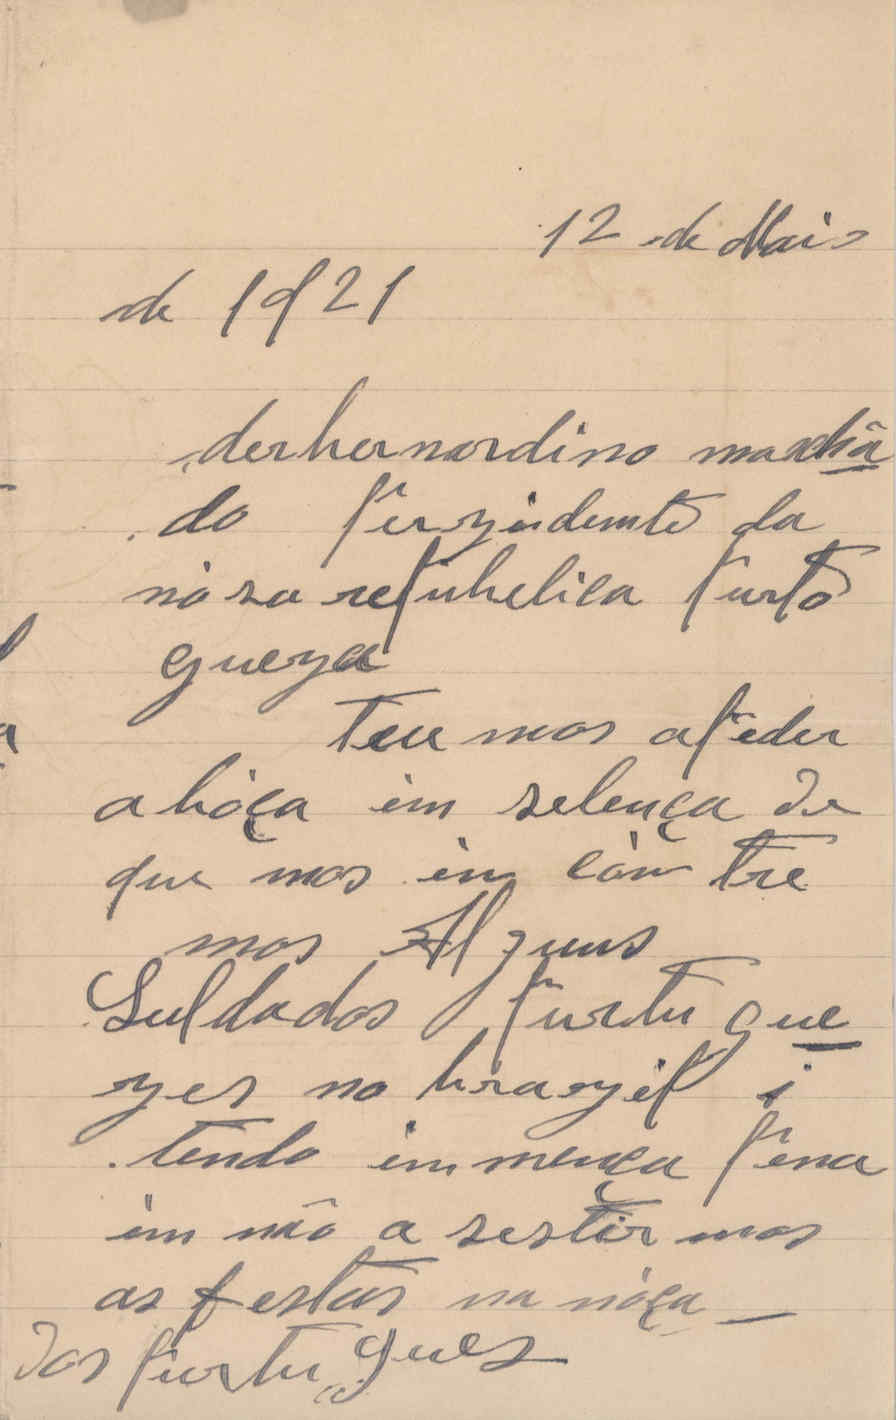 12 de Maio
de 1921
derbernardino machâ
do perzidemte da
nósa repubelica purto
gueza
Teu mos apeder
a bóça im selença de
que mos in con tre
mos Alguns
Suldados purtu gue
zes no brazil i
tendo immença pena
im não a sestir mos
as festas na nóça
dos purtugues